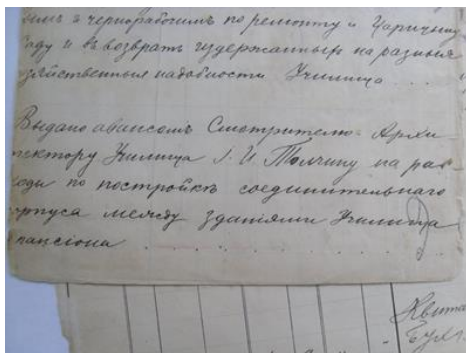 нымъ и чернорабочимъ по ремонту и Царичыну
Саду и въ возвратъ издержанныхъ на разныя
хозяйственныя надобности Училища . . .
Выдано авансомъ Смотрителю Архи
тектору Училища І. И. Толчину на рас
ходы по постройкѣ соединительнаго
корпуса между зданіями Училища
пансіона . . . . . . . .
Квита